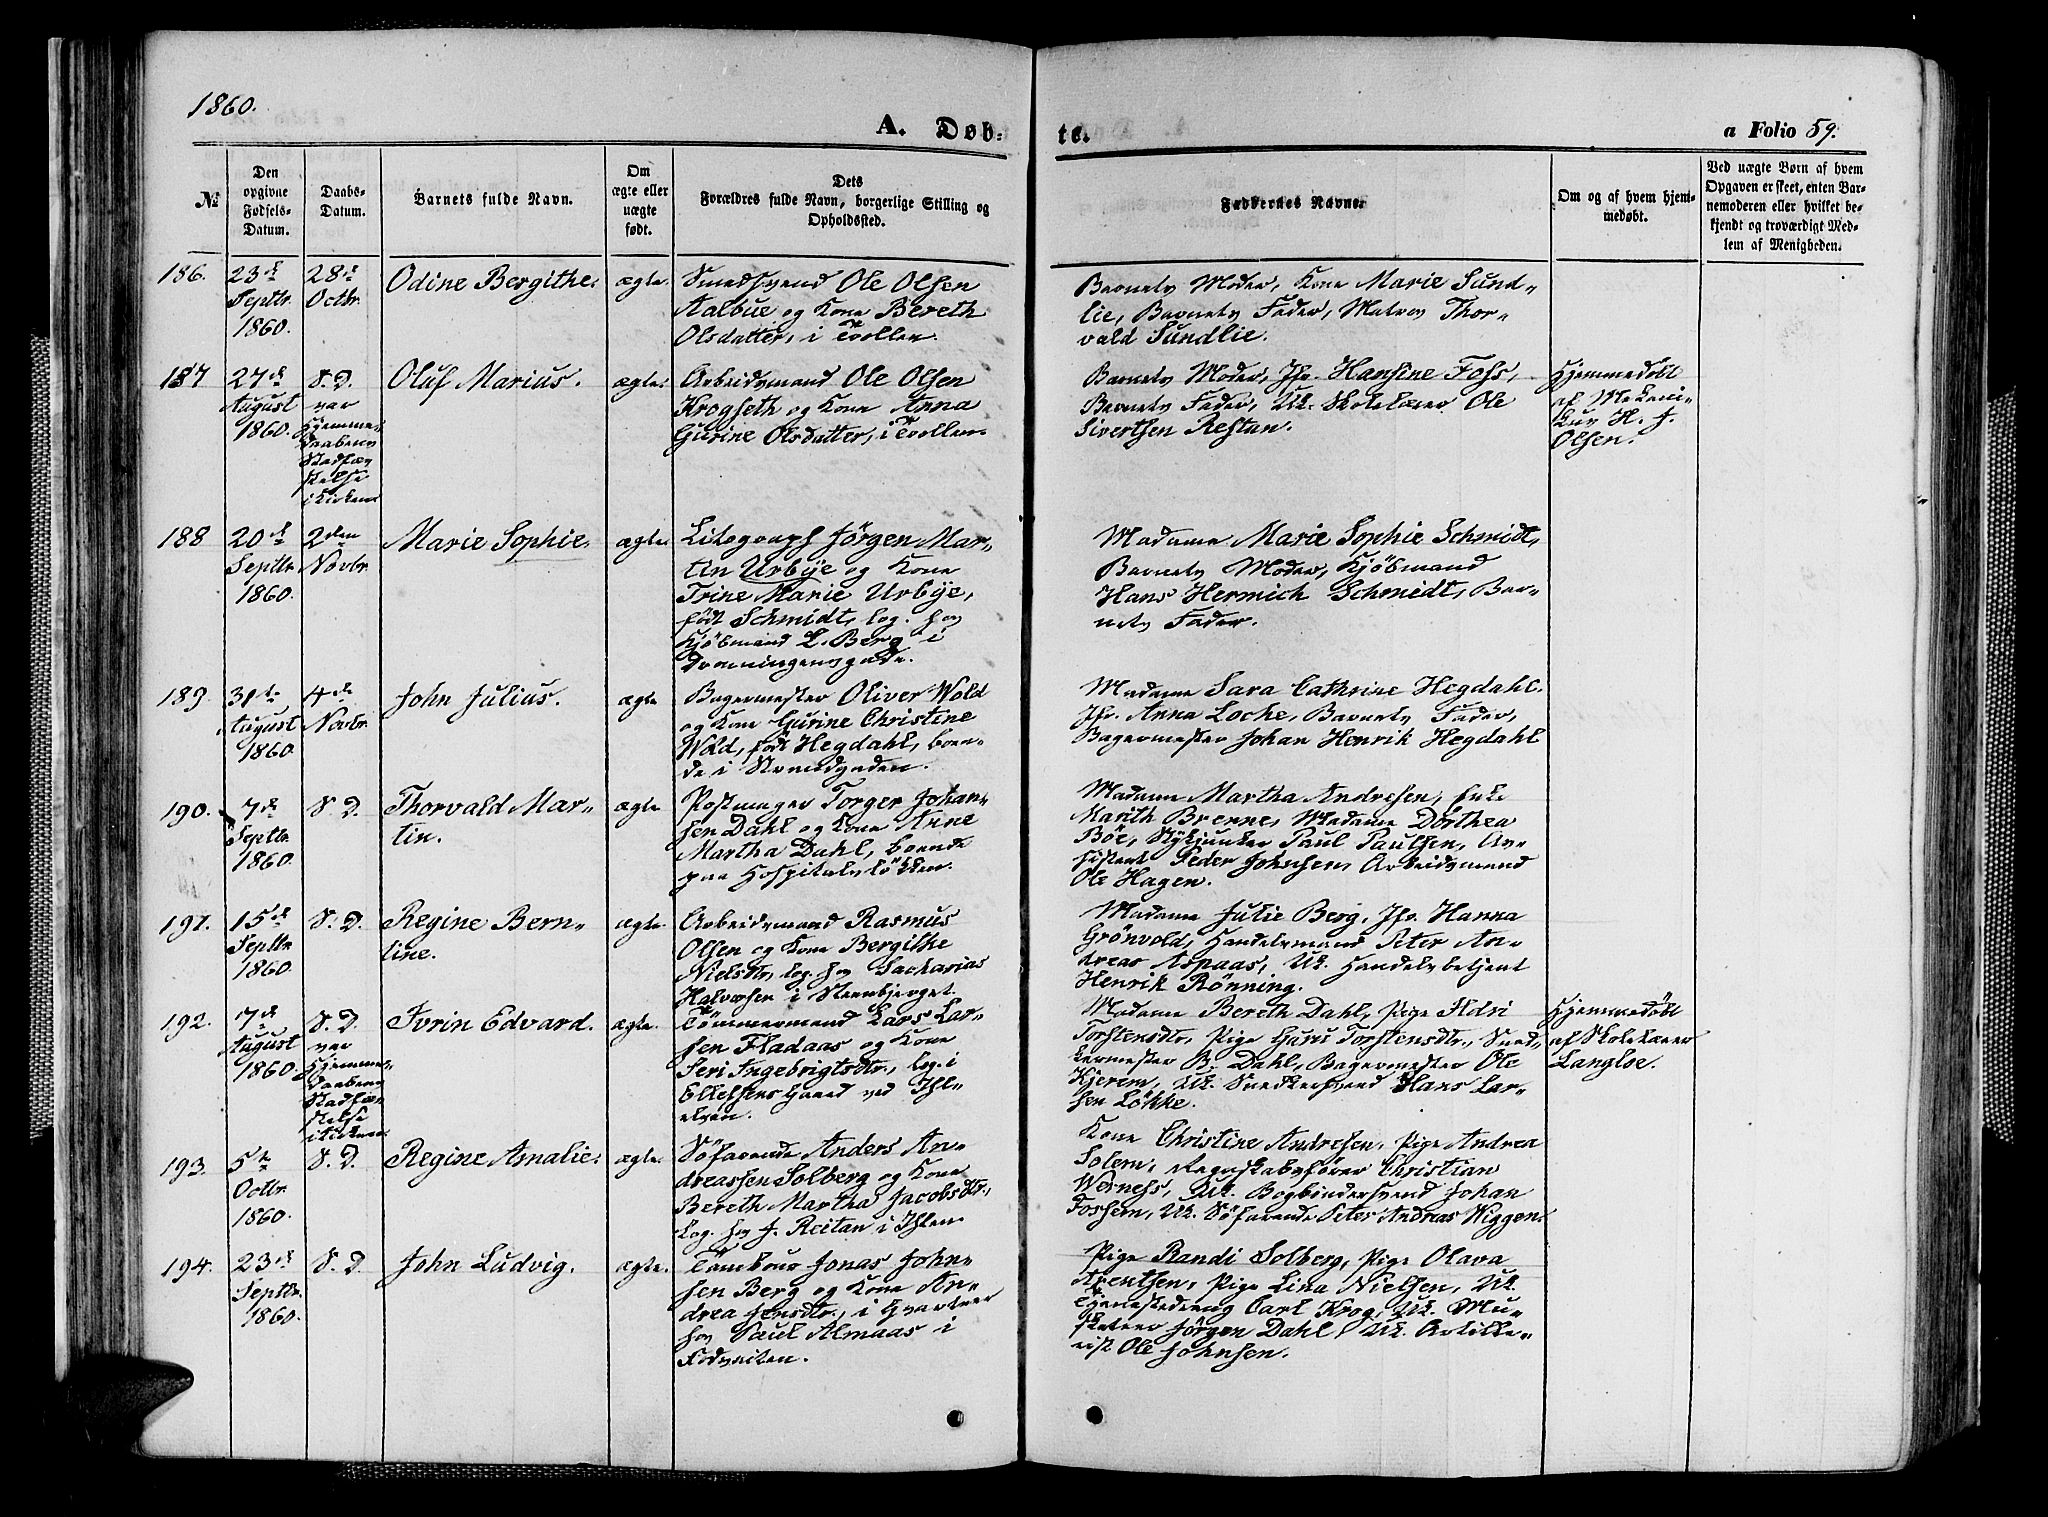 1860.
A. Døb-
te.
a Folio 59.
№
Den opgivne Fødsels-Datum.
Daabs-Datum.
Barnets fulde Navn.
Om ægte eller uægte født.
Dets Forældres fulde Navn, borgerlige Stilling og Opholdssted.
Faddernes Navne.
Om og af hvem hjem-medøbt.
Ved uægte Børn af hvem Opgaven er skeet, enten Bar-nemoderen eller hvilket be-kjendt og troværdigt Med-lem af Menigheden.
186.
23d
Septbr.
1860.
28d
Octbr.
Odine Bergithe.
ægte.
Smedsvend Ole Olsen
Aalbue og Kone Bereth
Olsdatter, i Trollen.
Barnets Moder, Kone Marie Sund-
lie, Barnets Fader, Matros Thor-
vald Sundlie.
187
27d
August
1860.
S. D.
var
Hjemme-
daabens
Stadfæ-
stelse
i Kirken
Oluf Marius.
ægte.
Arbeidsmand Ole Olsen
Krogseth og Kone Anna
Gurine Olsdatter, i Trollen.
Barnets Moder, Jfr. Hansine Foss,
Barnets Fader, Uk. Skolelærer Ole
Sivertsen Restan.
Hjemmedøbt
af Mekani-
kus H. J.
Olsen.
188
20d
Septbr.
1860.
2den
Novbr.
Marie Sophie.
ægte.
Litograph Jörgen Mar-
tin Urbye og Kone
Trine Marie Urbye,
født Schmidt, log. hos
Kjöbmand L. Berg i
Dronningensgade.
Madame Marie Sophie Schmidt,
Barnets Moder, Kjöbmand
Hans Hermich Schmidt, Bar-
nets Fader.
189.
31te
August
1860.
4de
Novbr.
John Julius.
ægte
Bagermester Oliver Wold
og Kone Gurine Christine
Wold, født Hegdahl, boen-
de i Strandgaden.
Madame Sara Cathrine Hegdahl.
Jfr. Anna Loche, Barnets Fader,
Bagermester Johan Henrik Hegdahl
190.
7de
Septbr.
1860.
S. D.
Thorvald Mar-
tin.
ægte
Postmager Torger Johan-
sen Dahl og Kone Anne
Martha Dahl, boende
paa Hospitalslökken.
Madame Martha Andresen, Enke
Marith Brenne, Madame Dorthea
Böe, Stykjunker Paul Paulsen, As-
sistent Peder Johnsen, Arbeidsmand
Ole Hagen.
191.
15de
Septbr.
1860.
S. D.
Regine Bern-
tine.
ægte.
Arbeidsmand Rasmus
Olsen og Kone Bergithe
Nielsdtr., log. hos Sacharias
Halvorsen i Steenbjerget.
Madame Julie Berg, Jfr. Hanna
Grönvold, Handelsmand Peter An-
dreas Aspaas, Uk. Handelsbetjent
Henrik Rönning.
192.
7de
August
1860.
S. D.
var
Hjemme-
daabens
Stadfæ-
stelse
i Kirken.
Ivrin Edvard.
ægte.
Tömmermand Lars Lar-
sen Fladaas og Kone
Seri Ingebrigtsdtr., log. i
Ellefsens Gaard ved Ihl-
elven.
Madame Bereth Dahl, Pige Ildri
Torstensdtr., Pige Guru Torstensdtr., Sned-
kermester B. Dahl, Bagermester Ole
Hjerem, Uk. Snedkersvend Hans Lar-
sen Lökke.
Hjemmedöbt
af Skolelærer
Langloe.
193.
5te
Octbr.
1860.
S. D.
Regine Amalie.
ægte.
Söfarende Anders An-
dreassen Solberg og Kone
Bereth Martha Jacobsdtr.,
Log. hos J. Reitan i Ihlen.
Kone Christine Andresen, Pige Andrea
Solem, Regnskabsförer Christian
Werness, Uk. Bogbindersvend Johan
Fossem, Uk. Söfarende Peter Andreas Wiggen.
194.
23de
Septbr.
1860.
S. D.
John Ludvig.
ægte.
Tambour Jonas John-
sen Berg og Kone An-
drea Jensdtr., i Qvarteer
hos Paul Almaas i
Fodgeiten.
Pige Randi Solberg, Pige Olava
Arentsen, Pige Lina Nielsen, Uk.
Tjenestedreng Carl Krog, Uk. Mu-
sketeer Jörgen Dahl, Uk. Artille-
rist Ole Johnsen.